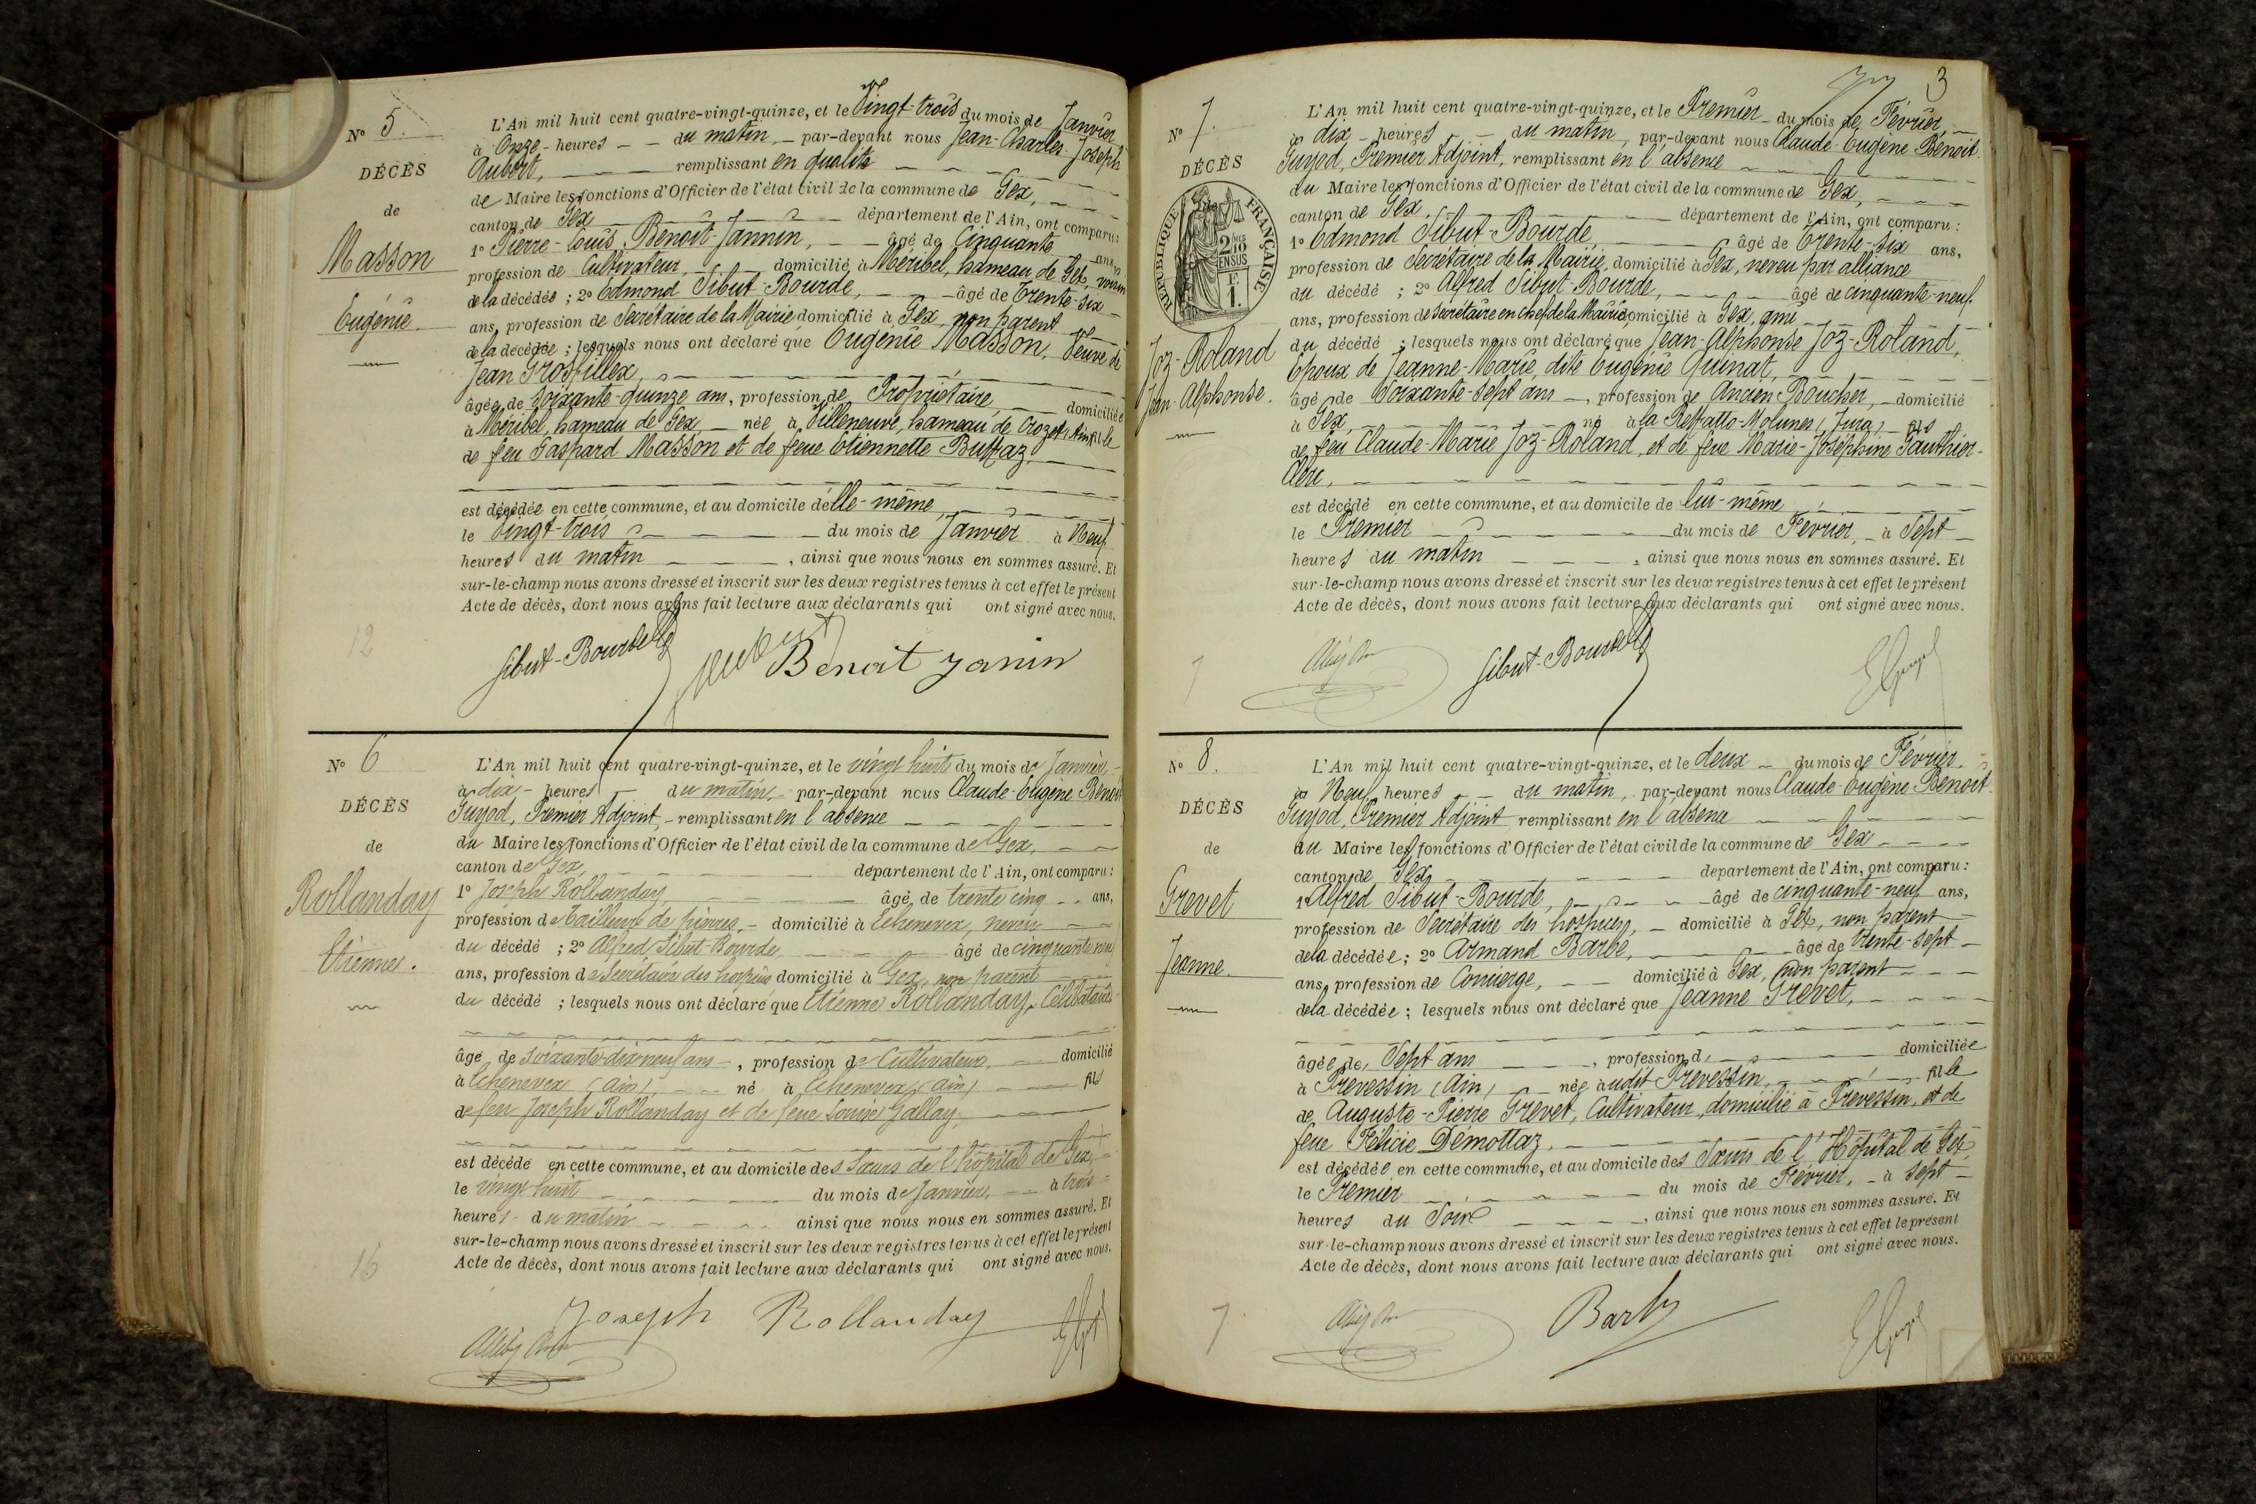 N° 5.
DÉCÈS
de
Masson
Eugénie.
L'An mil huit cent quatre-vingt-quinze, et le Vingt-trois du mois de Janvier
à Onze heures du matin, par-devant nous Jean-Charles-Joseph
Aubert, remplissant en qualité
de Maire les fonctions d'Officier de l'état civil de la commune de Gex,
canton de Gex département de l'Ain, ont comparu:
1° Pierre-Louis Benoit-Jannin, âgé de Cinquante ans,
profession de Cultivateur, domicilié à Méribel, hameau de Gex, voisin
de la décédée; 2° Edmond Sibut-Bourde, âgé de Trente-six
ans, profession de Secrétaire de la Mairie domicilié à Gex, non parent
de la décédée; lesquels nous ont déclaré que Eugénie Masson, Veuve de
Jean Grosfillex,
âgée de soixante-quinze ans, profession de Propriétaire domiciliée
à Méribel, hameau de Gex, née à Villeneuve, hameau de Crozet (Ain) fille
de feu Gaspard Masson et de feue Etiennette Buffaz,
est décédée en cette commune, et au domicile d'elle-même
le Vingt-trois du mois de Janvier à Neuf
heures du matin, ainsi que nous nous en sommes assuré. Et
sur-le-champ nous avons dressé et inscrit sur les deux registres tenus à cet effet le présent
Acte de décès, dont nous avons fait lecture aux déclarants qui ont signé avec nous.
12
Sibut-Bourde Aubert Benoit janin
N° 6
DÉCÈS
de
Rollanday
Etienne.
L'An mil huit cent quatre-vingt-quinze, et le vingt huit du mois de Janvier
à dix heures du matin, par-devant nous Claude-Eugène Benoit
Guyod, Premier Adjoint, remplissant en l'absence
du Maire les fonctions d'Officier de l'état civil de la commune de Gex,
canton de Gex département de l'Ain, ont comparu:
1° Joseph Rollanday, âgé de trente cinq ans,
profession de Tailleur de pierres, domicilié à Echenevex, neveu
du décédé; 2° Alfred Sibut-Bourde âgé de cinquante neuf
ans, profession de Secrétaire des hospices domicilié à Gex, non parent
du décédé; lesquels nous ont déclaré que Etienne Rollanday, Célibataire
âgé de soixante-dix-neuf ans, profession de Cultivateur, domicilié
à Echenevex (ain) né à Echenevex (ain) fils
de feu Joseph Rollanday et de feue Louise Gallay,
est décédé en cette commune, et au domicile des Soeurs de l'hôpital de Gex
le vingt huit du mois de Janvier, à trois
heures du matin ainsi que nous nous en sommes assuré. Et
sur-le-champ nous avons dressé et inscrit sur les deux registres tenus à cet effet le présent
Acte de décès, dont nous avons fait lecture aux déclarants qui ont signé avec nous.
Joseph Rollanday
3
N° 7.
DÉCÈS
RÉPUBLIQUE FRANÇAISE
2/10 EN SUS
F. 1.
Joz-Roland
Jean-Alphonse.
L'An mil huit cent quatre-vingt-quinze, et le Premier du mois de Février,
à dix heures du matin, par-devant nous Claude-Eugène Benoit
Guyod, Premier Adjoint, remplissant en l'absence
du Maire les fonctions d'Officier de l'état civil de la commune de Gex,
canton de Gex, département de l'Ain, ont comparu:
1° Edmond Sibut-Bourde âgé de Trente-six ans,
profession de Secrétaire de la Mairie, domicilié à Gex, neveu par alliance
du décédé; 2° Alfred Sibut-Bourde, âgé de cinquante-neuf
ans, profession de secrétaire en chef de la Mairie, domicilié à Gex, ami
du décédé; lesquels nous ont déclaré que Jean-Alphonse Joz-Roland,
Epoux de Jeanne-Marie, dite Eugénie Quinat,
âgé de Soixante-sept ans, profession de Ancien Boucher, domicilié
à Gex, né à la Pessatte-Molunes (Jura) fils
de feu Claude-Marie Joz-Roland, et de feue Marie-Joséphine Gauthier-
Clerc,
est décédé en cette commune, et au domicile de lui-même
le Premier du mois de Février, à Sept
heures du matin, ainsi que nous nous en sommes assuré. Et
sur-le-champ nous avons dressé et inscrit sur les deux registres tenus à cet effet le présent
Acte de décès, dont nous avons fait lecture aux déclarants qui ont signé avec nous.
7
Sibut-Bourde
N° 8.
DÉCÈS
de
Grevet
Jeanne.
L'An mil huit cent quatre-vingt-quinze, et le deux du mois de Février.
à Neuf heures du matin, par-devant nous Claude-Eugène Benoit
Guyod, Premier Adjoint remplissant en l'absence
du Maire les fonctions d'Officier de l'état civil de la commune de Gex
canton de Gex département de l'Ain, ont comparu:
1° Alfred Sibut-Bourde, âgé de cinquante-neuf ans,
profession de Secrétaire des hospices, domicilié à Gex, non parent
de la décédée; 2° Armand Barbe, âgé de trente-sept
ans, profession de Concierge, domicilié à Gex, non parent
de la décédée; lesquels nous ont déclaré que Jeanne Grevet,
âgée de Sept ans, profession d domiciliée
à Prevessin (Ain) née audit Prevessin, fille
de Auguste-Pierre Grevet, Cultivateur, domicilié à Prevessin, et de
feue Félicie Démottaz,
est décédée en cette commune, et au domicile des Soeurs de l'Hôpital de Gex,
le Premier du mois de Février, à sept
heures du Soir, ainsi que nous nous en sommes assuré. Et
sur-le-champ nous avons dressé et inscrit sur les deux registres tenus à cet effet le présent
Acte de décès, dont nous avons fait lecture aux déclarants qui ont signé avec nous.
7.
Barbe